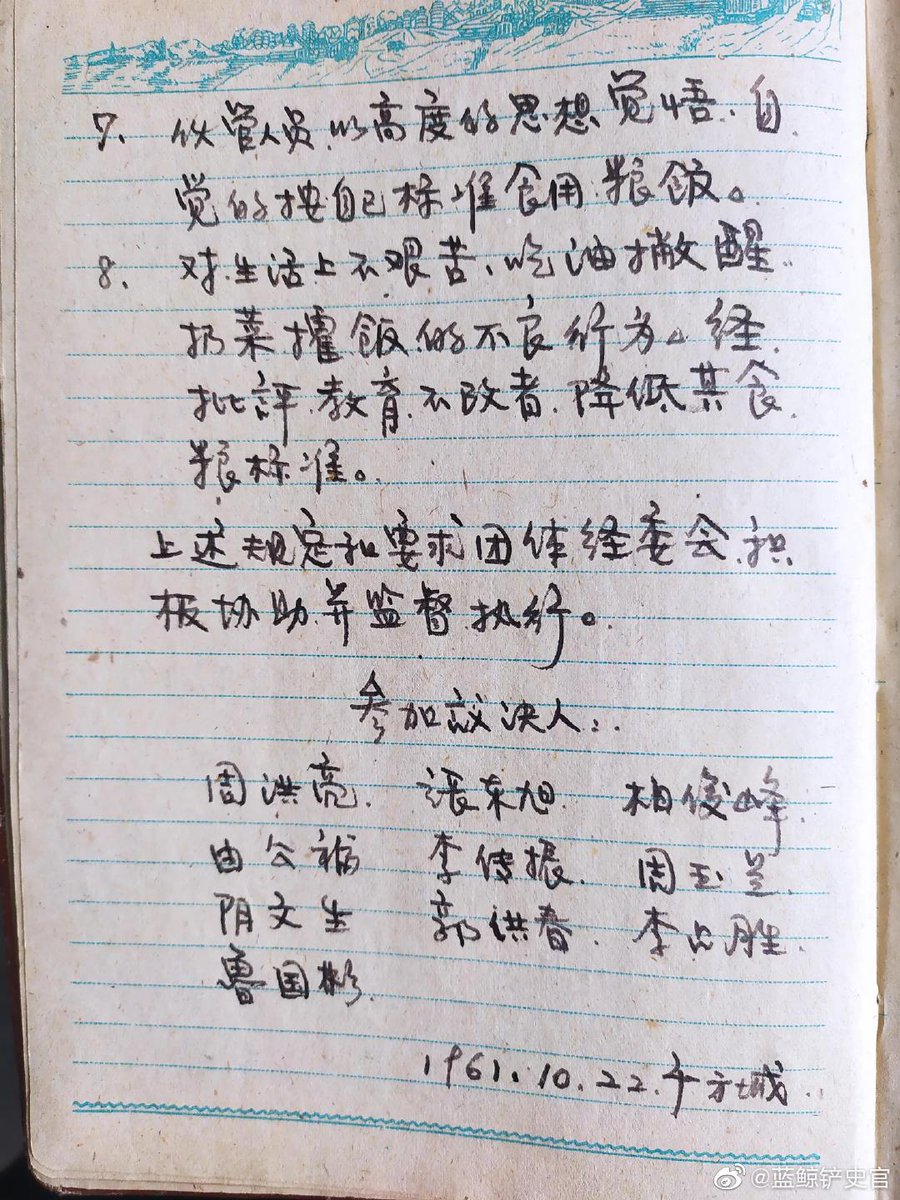 7. 伙管人员以高度的思想觉悟、自
觉的按自己标准食用粮饭。
8. 对生活上不艰苦、吃油撇醒
扔菜攉飯的不良行为。经
批評教育不改者降低其食
粮标准。
上述规定和要求团体经委会积
极协助并监督执行。
参加议决人:
周洪亮 張东旭 柏俊峰
由公裕 李传振 周玉兰
阴文生 郭洪春 李占胜
魯国彬
1961.10.22.于方城
@蓝鲸铲史官